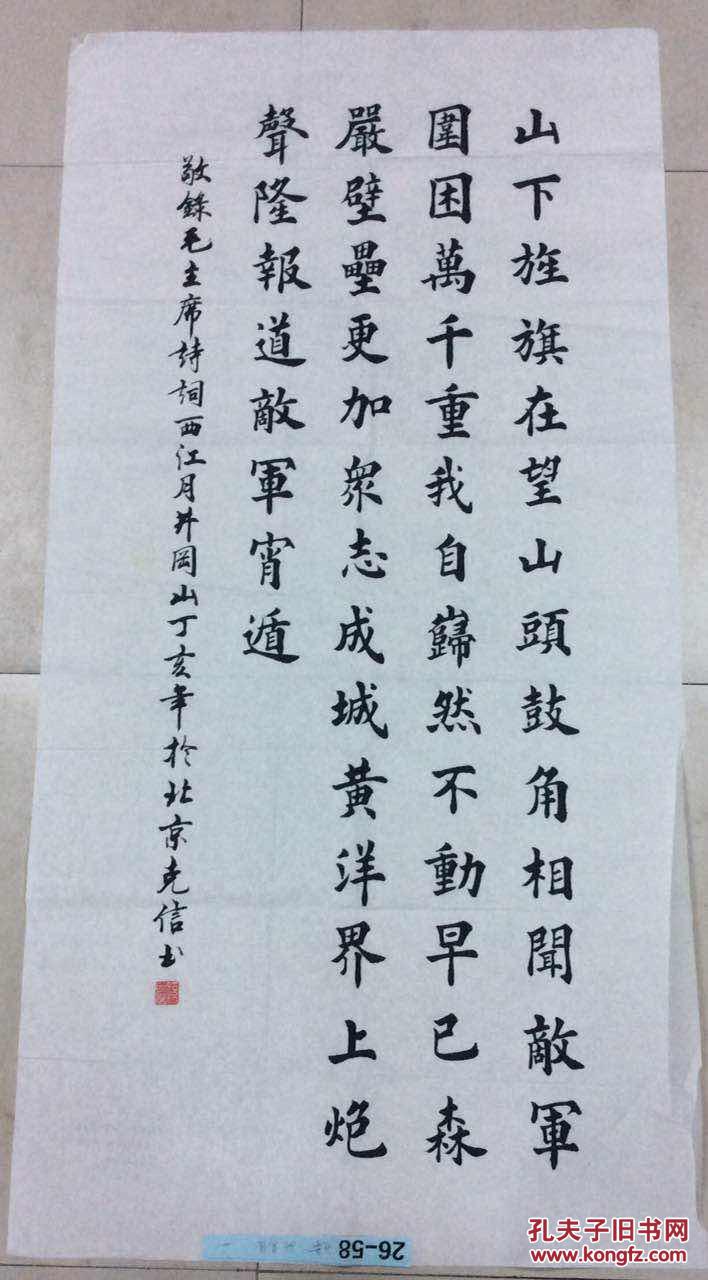 山下旌旗在望山頭鼓角相聞敵軍
圍困萬千重我自巋然不動早已森
嚴壁壘更加衆志成城黃洋界上炮
聲隆報道敵軍宵遁
敬錄毛主席詩詞西江月井岡山丁亥年於北京克信书
26-58
孔夫子旧书网
www.kongfz.com